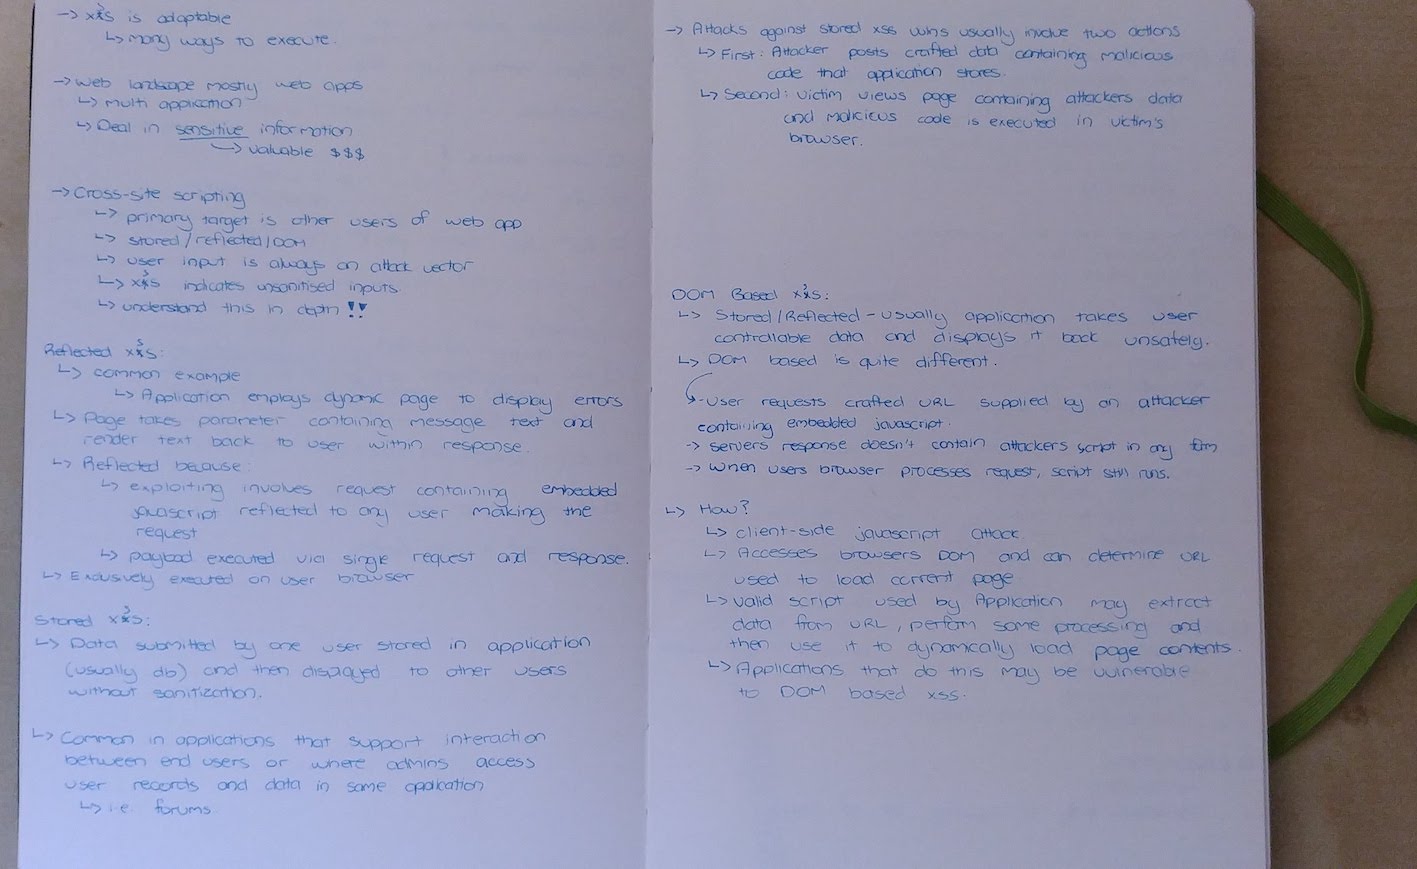 -> xss is adaptable
↳ Many ways to execute.
-> Web landscape mostly web apps
↳ Multi application
↳ Deal in sensitive information
↳ valuable $$$
-> Cross-site scripting
↳ primary target is other users of web app
↳ stored/reflected/DOM
↳ user input is always an attack vector
↳ xss indicates unsanitised inputs
↳ understand this in depth !!
Reflected xss:
↳ common example
↳ Application employs dynamic page to display errors
↳ Page takes parameter containing message text and
render text back to user within response.
↳ Reflected because:
↳ exploiting involves request containing embedded
javascript reflected to any user making the
request
↳ payload executed via single request and response.
↳ Exclusively executed on user browser
Stored xss:
↳ Data submitted by one user stored in application
(usually db) and then displayed to other users
without sanitization.
↳ Common in applications that support interaction
between end users or where admins access
user records and data in same application
↳ i.e. forums
-> Attacks against stored xss vulns usually involve two actions
↳ First: Attacker posts crafted data containing malicious
code that application stores.
↳ Second: Victim views page containing attackers data
and malicious code is executed in victim's
browser.
DOM Based xss:
↳ Stored/Reflected - usually application takes user
controllable data and displays it back unsafely.
↳ DOM based is quite different.
↳ -User requests crafted URL supplied by an attacker
containing embedded javascript.
-> servers response doesn't contain attackers script in any form
-> when users browser processes request, script still runs.
↳ How?
↳ client-side javascript attack
↳ Accesses browsers DOM and can determine URL
used to load current page
↳ valid script used by Application may extract
data from URL, perform some processing and
then use it to dynamically load page contents.
↳ Applications that do this may be vulnerable
to DOM based xss.